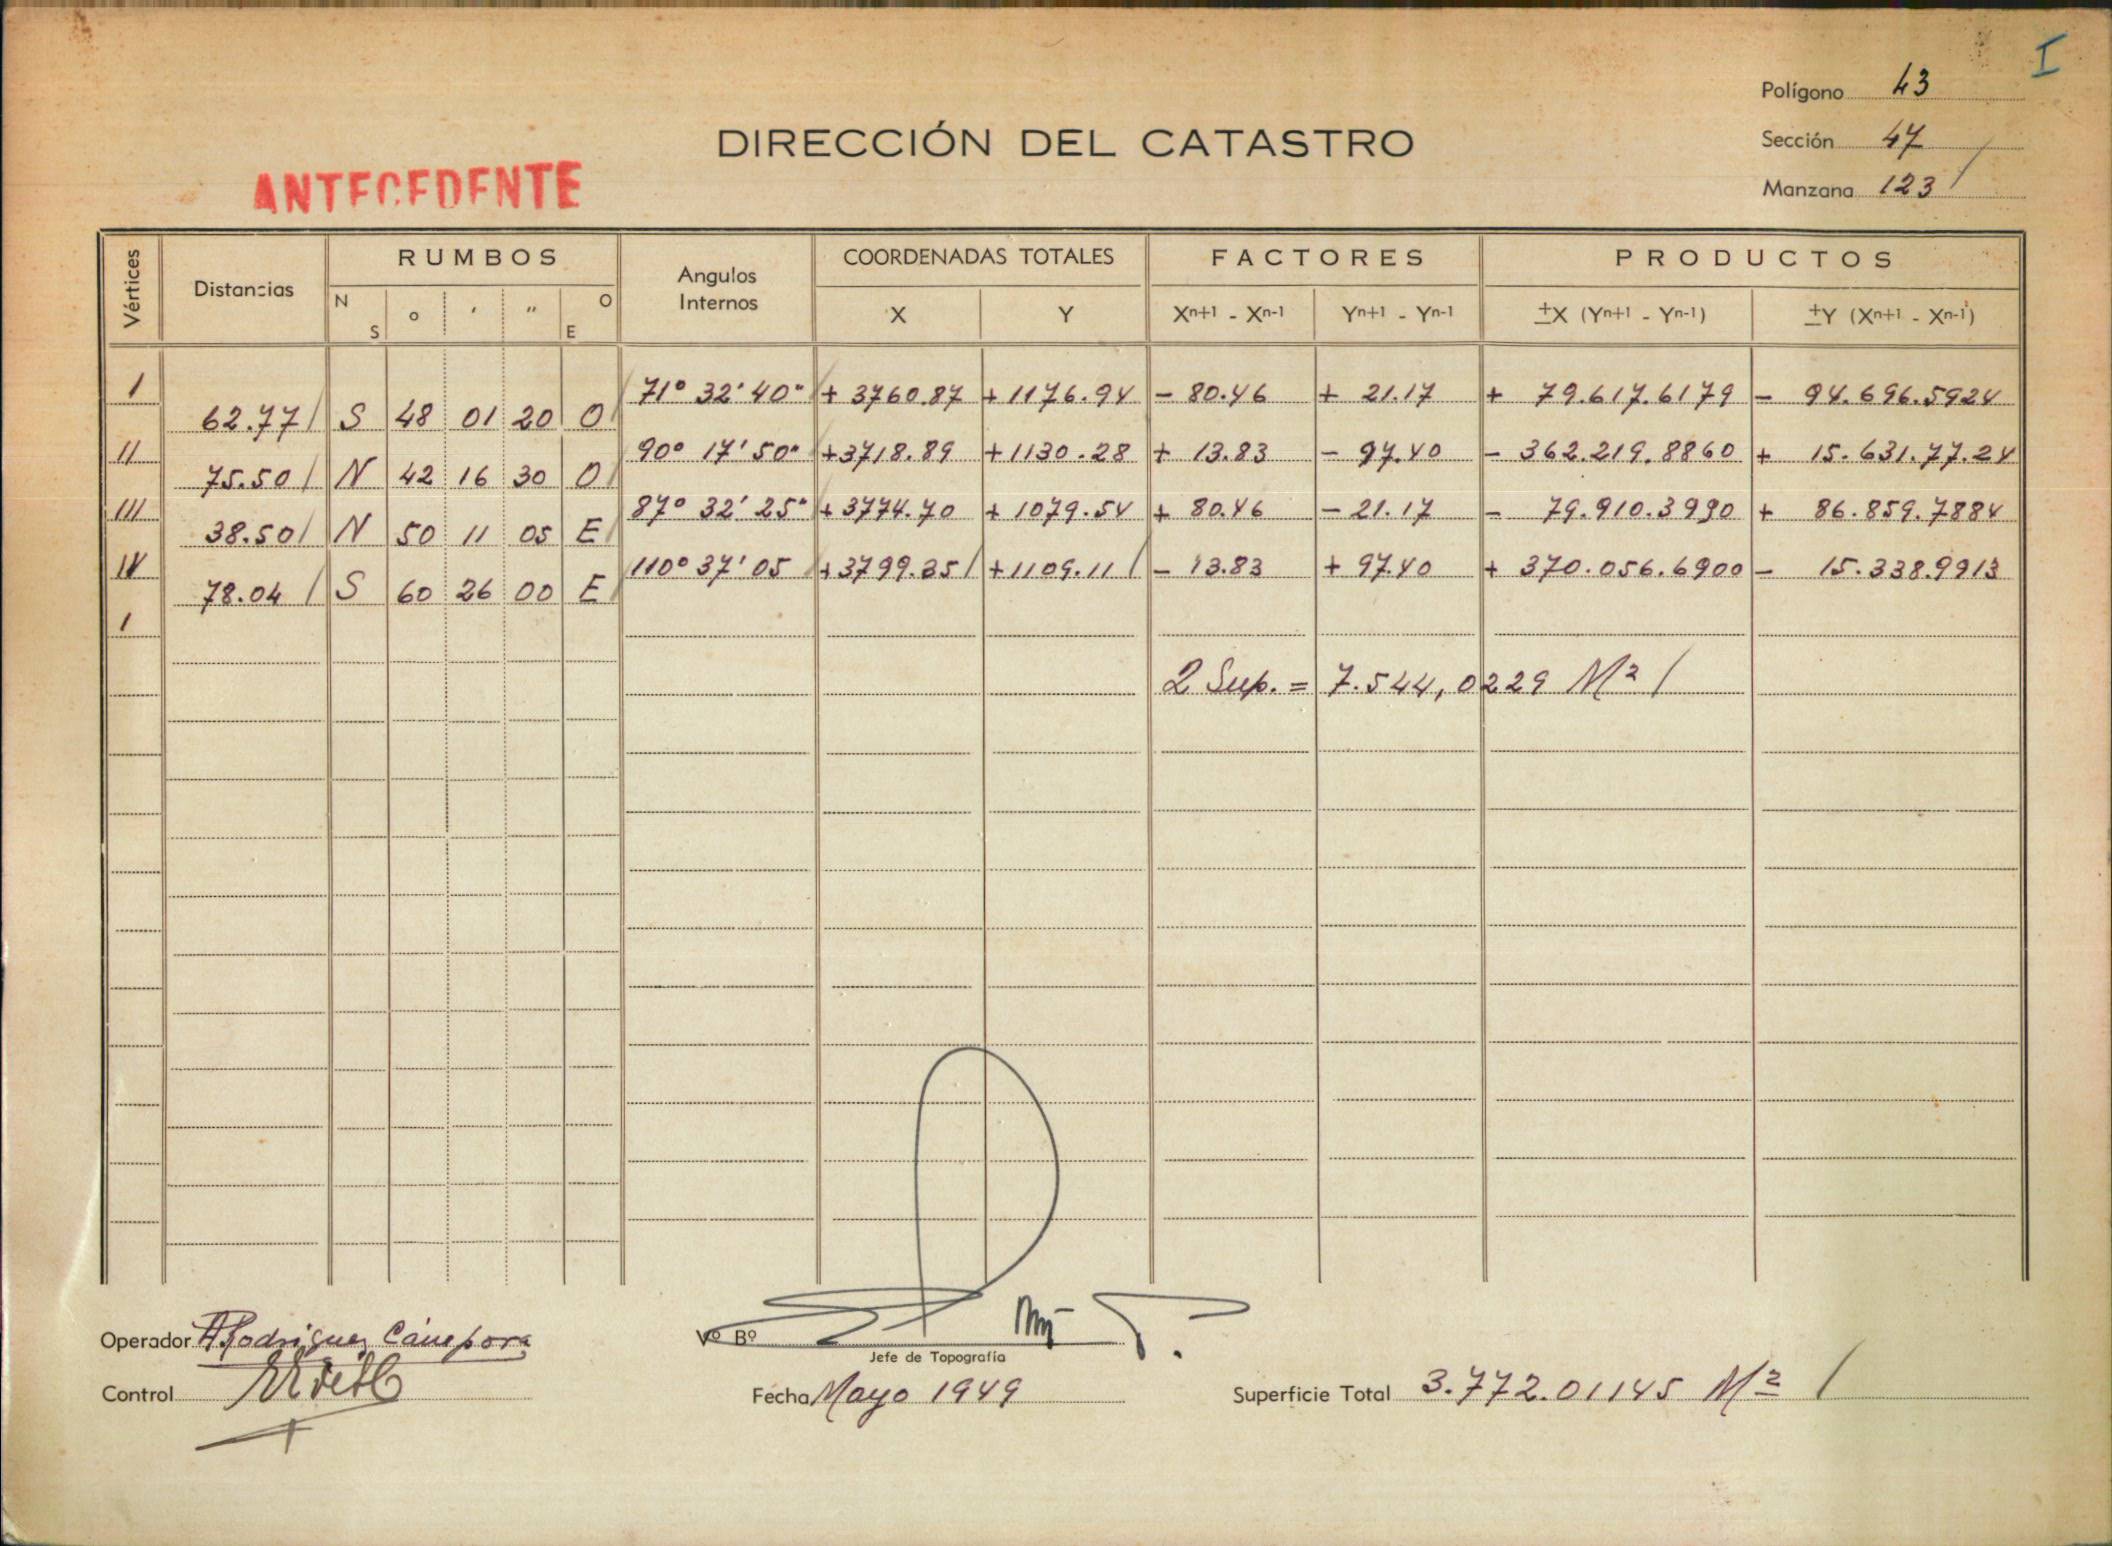 I
Polígono 43
DIRECCIÓN DEL CATASTRO
Sección 47
ANTECEDENTE
Manzana 123 /
Vértices Distancias RUMBOS Angulos Internos COORDENADAS TOTALES FACTORES PRODUCTOS
N S o ' " O E X Y Xn+1 - Xn-1 Yn+1 - Yn-1 ±X (Yn+1 - Yn-1) ±Y (Xn+1 - Xn-1)
I 71° 32' 40" + 3760.87 + 1176.94 - 80.46 + 21.17 + 79.617.6179 - 94.696.5924
62.77 / S 48 01 20 O
II 90° 17' 50" +3718.89 +1130.28 + 13.83 - 97.40 - 362.219.8860 + 15.631.77.24
75.50 / N 42 16 30 O
III 87° 32' 25" +3774.70 + 1079.54 + 80.46 - 21.17 - 79.910.3990 + 86.859.7884
38.50 / N 50 11 05 E
IV 110° 37' 05 +3799.35 / +1109.11 / - 13.83 + 97.40 + 370.056.6900 - 15.338.9913
78.04 / S 60 26 00 E
I
2 Sup. = 7.544,0229 M2 /
Operador A Rodriguez Cánepora
Vº Bº
Jefe de Topografía
Control
Fecha Mayo 1949
Superficie Total 3.772.01145 M2 /